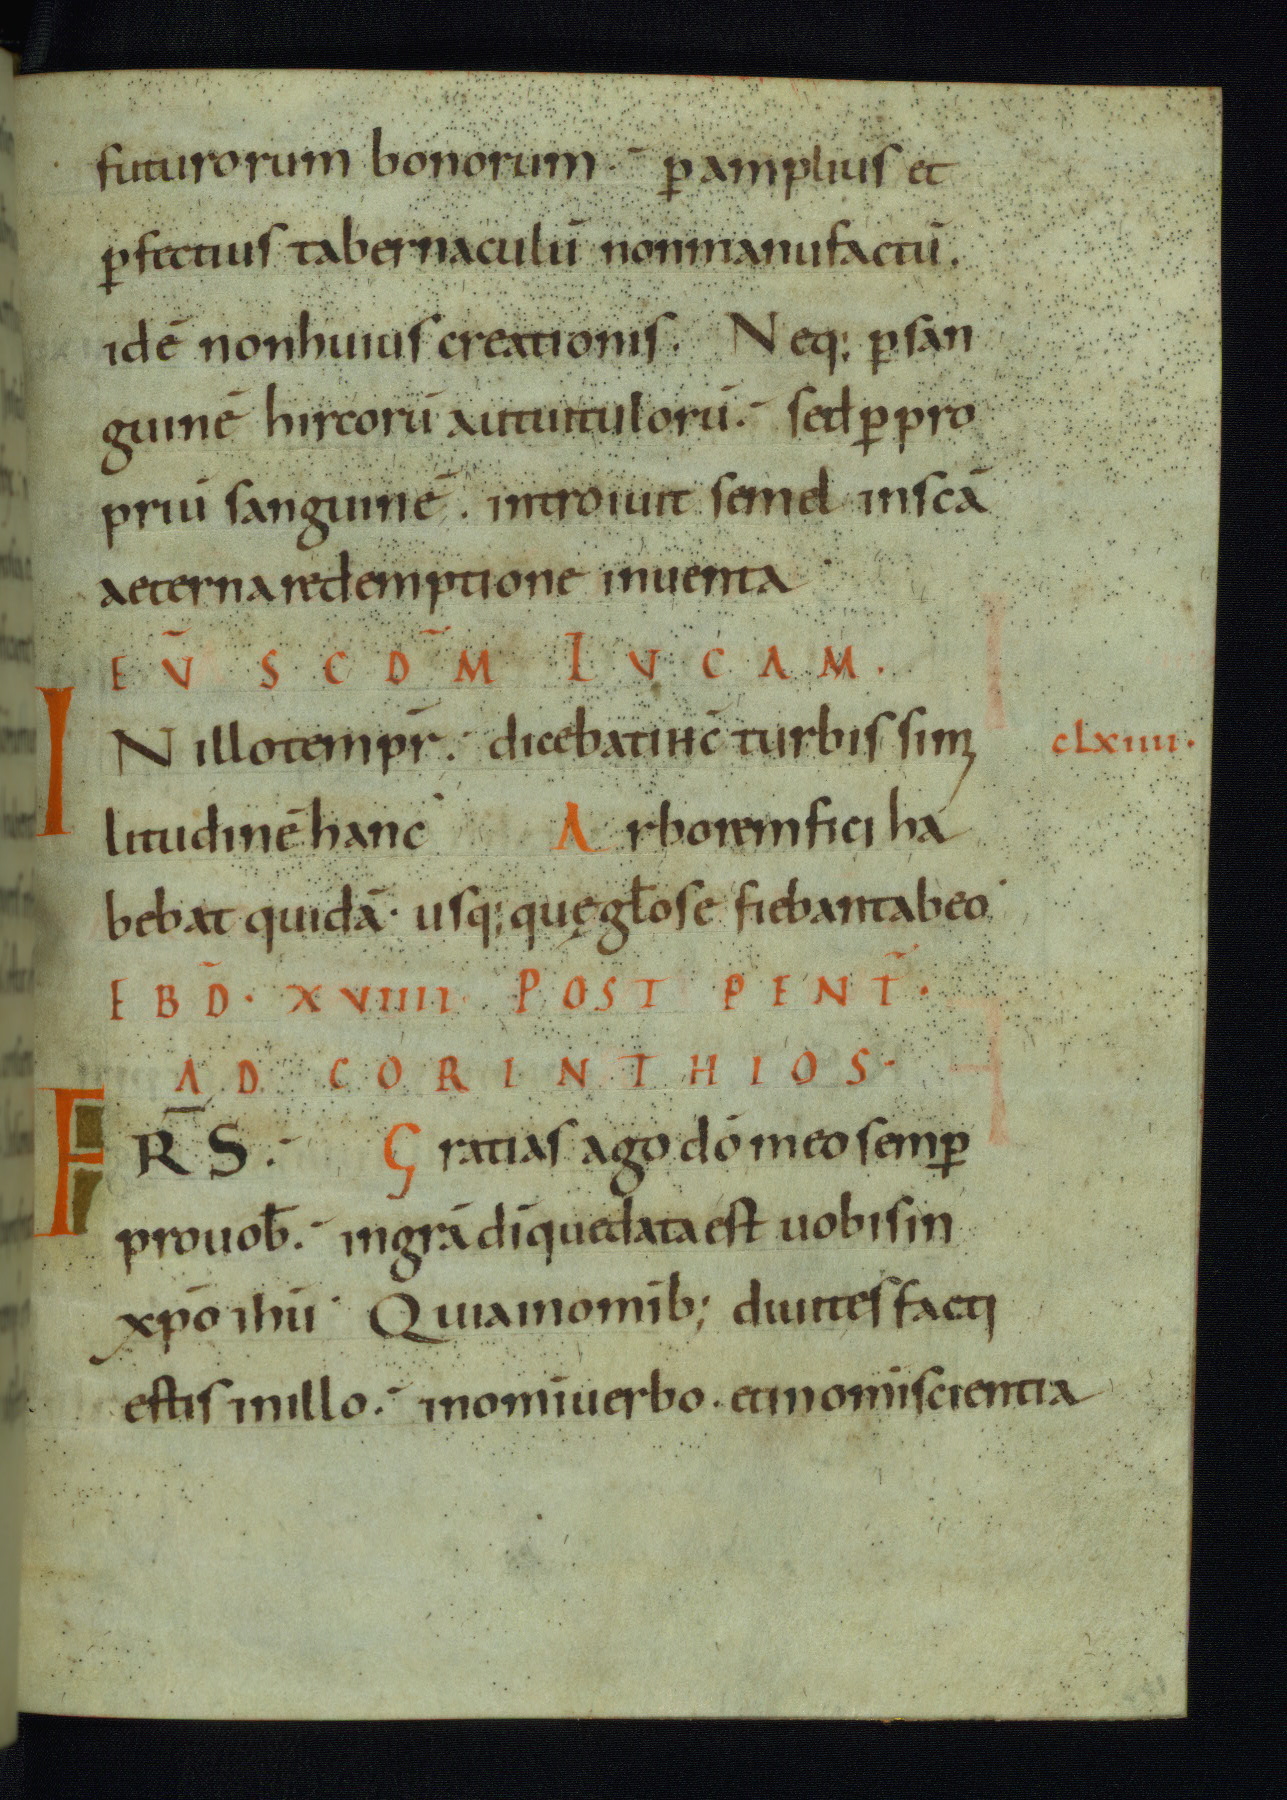 futurorum bonorum. ꝑ amplius et
ꝑfectius tabernaculū non manufactū.
idē non huius creationis. Neq; ꝑ san
guinē hircorū aut uitulorū. sed ꝑ pro
priū sanguinē. introiuit semel in scā
aeterna redemptione inuenta
EṼ SCDM̃ LVCAM.
IN illo tempr̄. dicebat ihc̄ turbis simi
litudinē hanc Arborem fici ha
bebat quidā. usq; quę gl̄ose fiebant ab eo
EBD̄. XVIIII POST PENT̄.
AD CORINTHIOS.
FR̄S. Gratias ago dō meo semꝑ
pro uob̄. in grā dī que data est uobis in
xp̄o ihū Quia in omīb; diuites facti
estis in illo. in omī uerbo. et in omī scientia
cLxiiii.